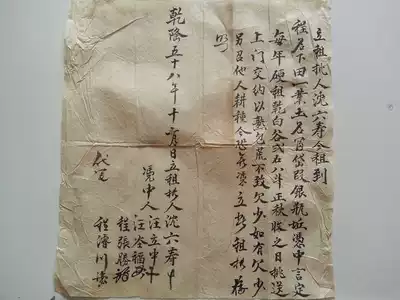 立租批人沈六寿今租到
程名下田一業土名官岱段银瓶坵憑中言定
每年硬租乾白谷弍石八斗正秋收之日挑送
上门交纳以熟包荒不致欠少如有欠少
另召他人耕種今恐無憑立此租批存
照
乾隆五十八年十一月日立租批人沈六寿
憑中人汪立中
汪岺福
程張勝
代笔程濬川